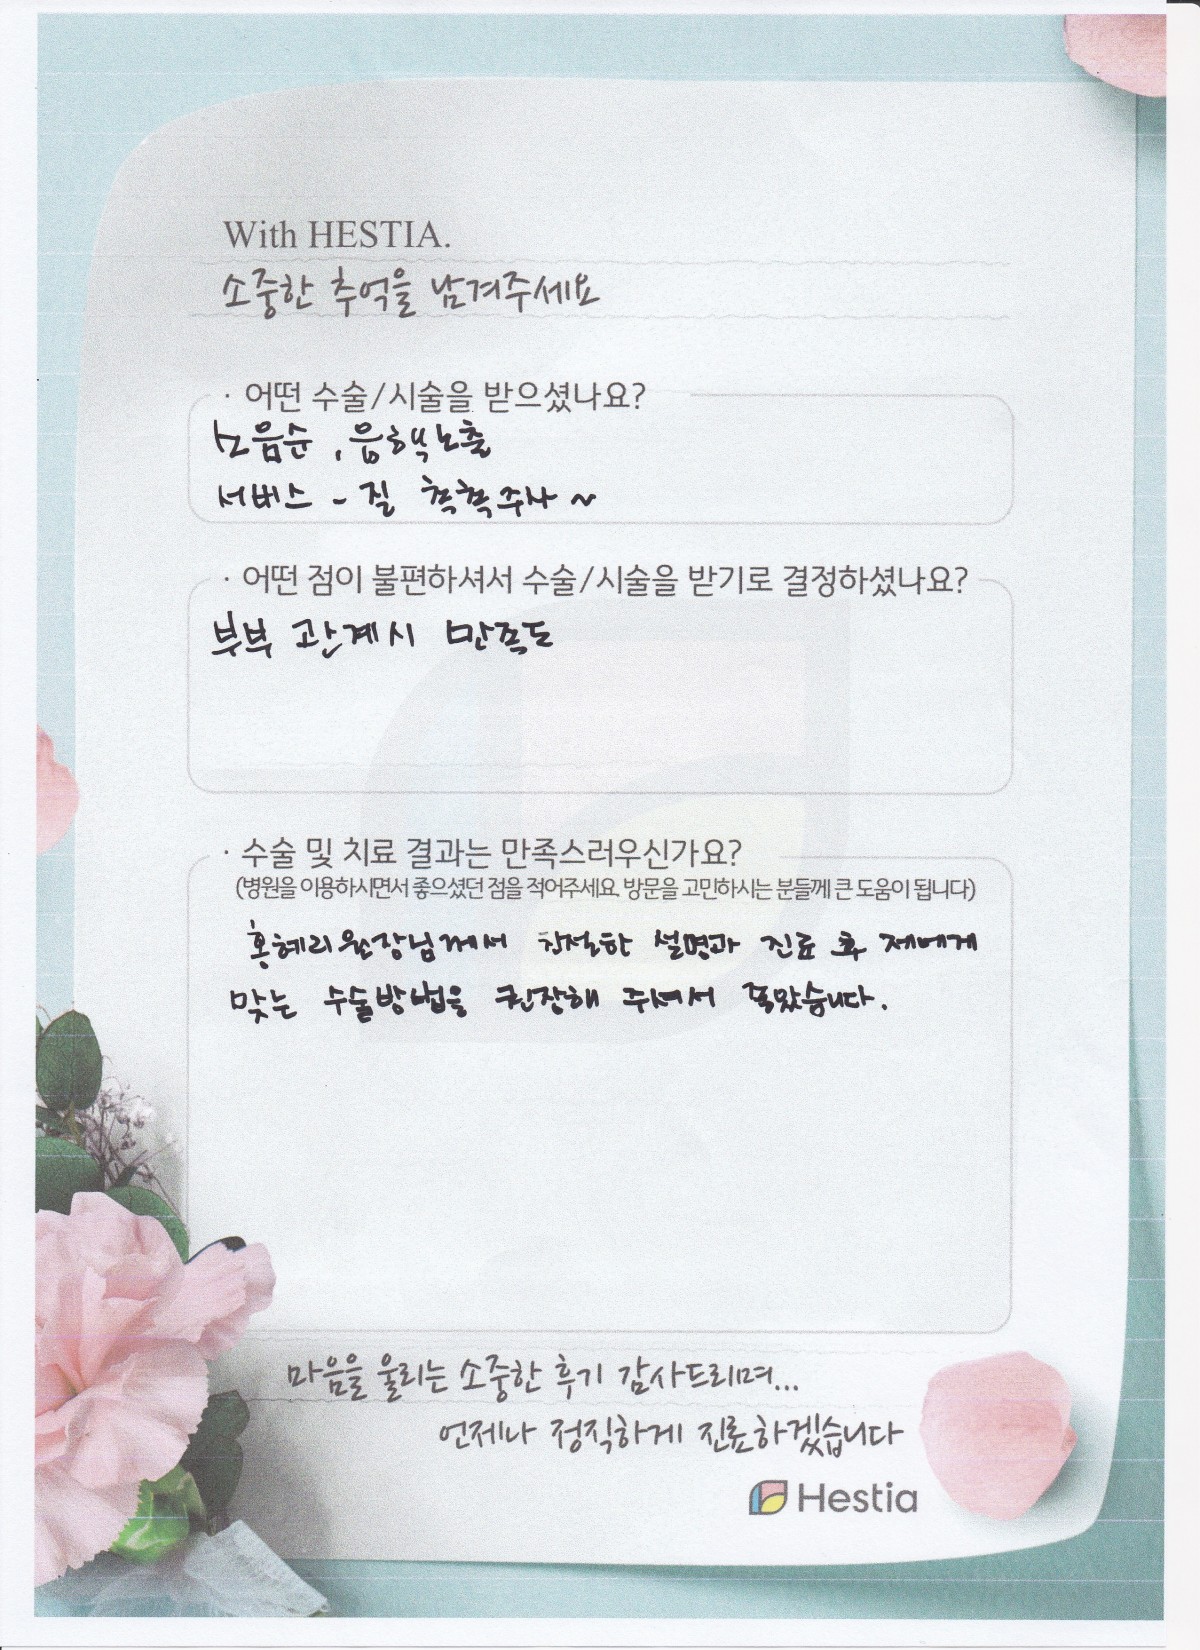 With HESTIA.
소중한 추억을 남겨주세요
· 어떤 수술/시술을 받으셨나요?
소음순, 음핵노출
서비스 - 질 착착주사 ~
· 어떤 점이 불편하셔서 수술/시술을 받기로 결정하셨나요?
부부 관계시 만족도
· 수술 및 치료 결과는 만족스러우신가요?
(병원을 이용하시면서 좋으셨던 점을 적어주세요. 방문을 고민하시는 분들께 큰 도움이 됩니다)
홍혜리원장님께서 친절한 설명과 진료 후 제에게
맞는 수술방법을 권장해 주셔서 좋았습니다.
마음을 울리는 소중한 후기 감사드리며...
언제나 정직하게 진료하겠습니다
Hestia